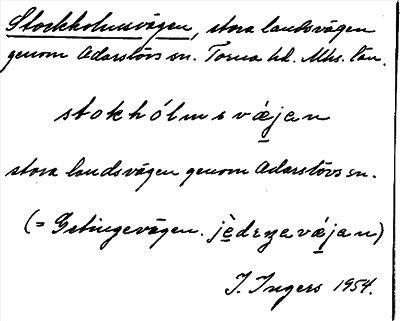 Stockholmsvägen, stora landsvägen
genom Adarslövs sn. Torna hd. Mhs. län.
stokhólmsvǽjan
stora landsvägen genom Adarslövs sn.
(= Getingevägen. jèdeŋavǽjan)
I. Ingers 1954.